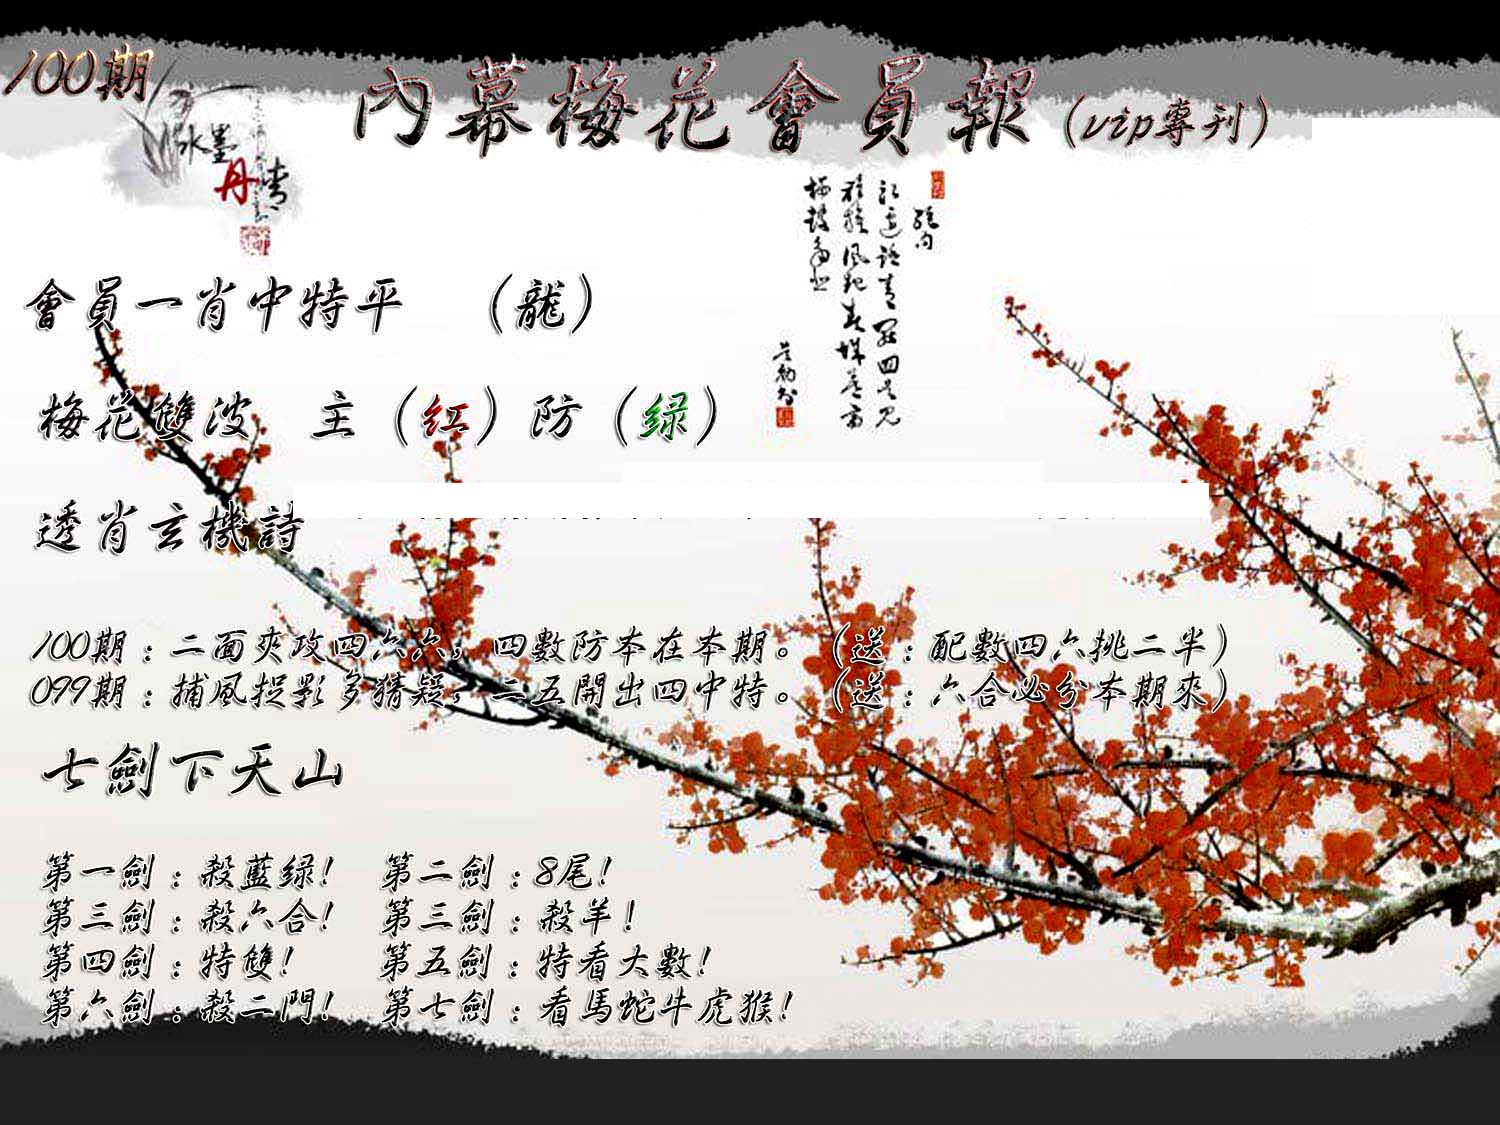 100期
內幕梅花會員報(vip專刊)
水墨
丹青
會員一肖中特平 (龍)
梅花雙波 主(红)防(绿)
透肖玄機詩
100期:二面夾攻四六六,四數防本在本期。(送:配數四六挑二半)
099期:捕風捉影多猜疑,二五開出四中特。(送:六合必分本期來)
七劍下天山
第一劍:殺藍绿! 第二劍:8尾!
第三劍:殺六合! 第三劍:殺羊!
第四劍:特雙! 第五劍:特看大數!
第六劍:殺二門! 第七劍:看馬蛇牛虎猴!